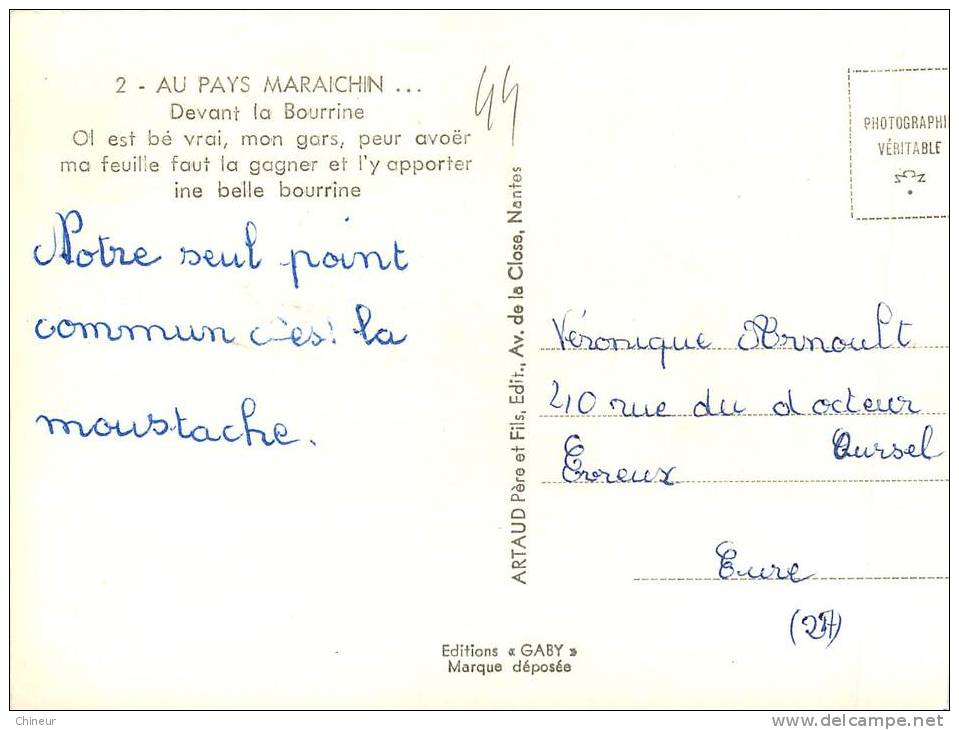 2 - AU PAYS MARAICHIN ...
Devant la Bourrine
Ol est bé vrai, mon gars, peur avoër
ma feuille faut la gagner et l'y apporter
ine belle bourrine
44
Notre seul point
commun c'est la
moustache.
ARTAUD Père et Fils, Edit., Av. de la Close, Nantes
PHOTOGRAPHI
VÉRITABLE
Véronique Arnoult
40 rue du docteur
Oursel
Evreux
Eure
(27)
Editions « GABY »
Marque déposée
Chineur
www.delcampe.net